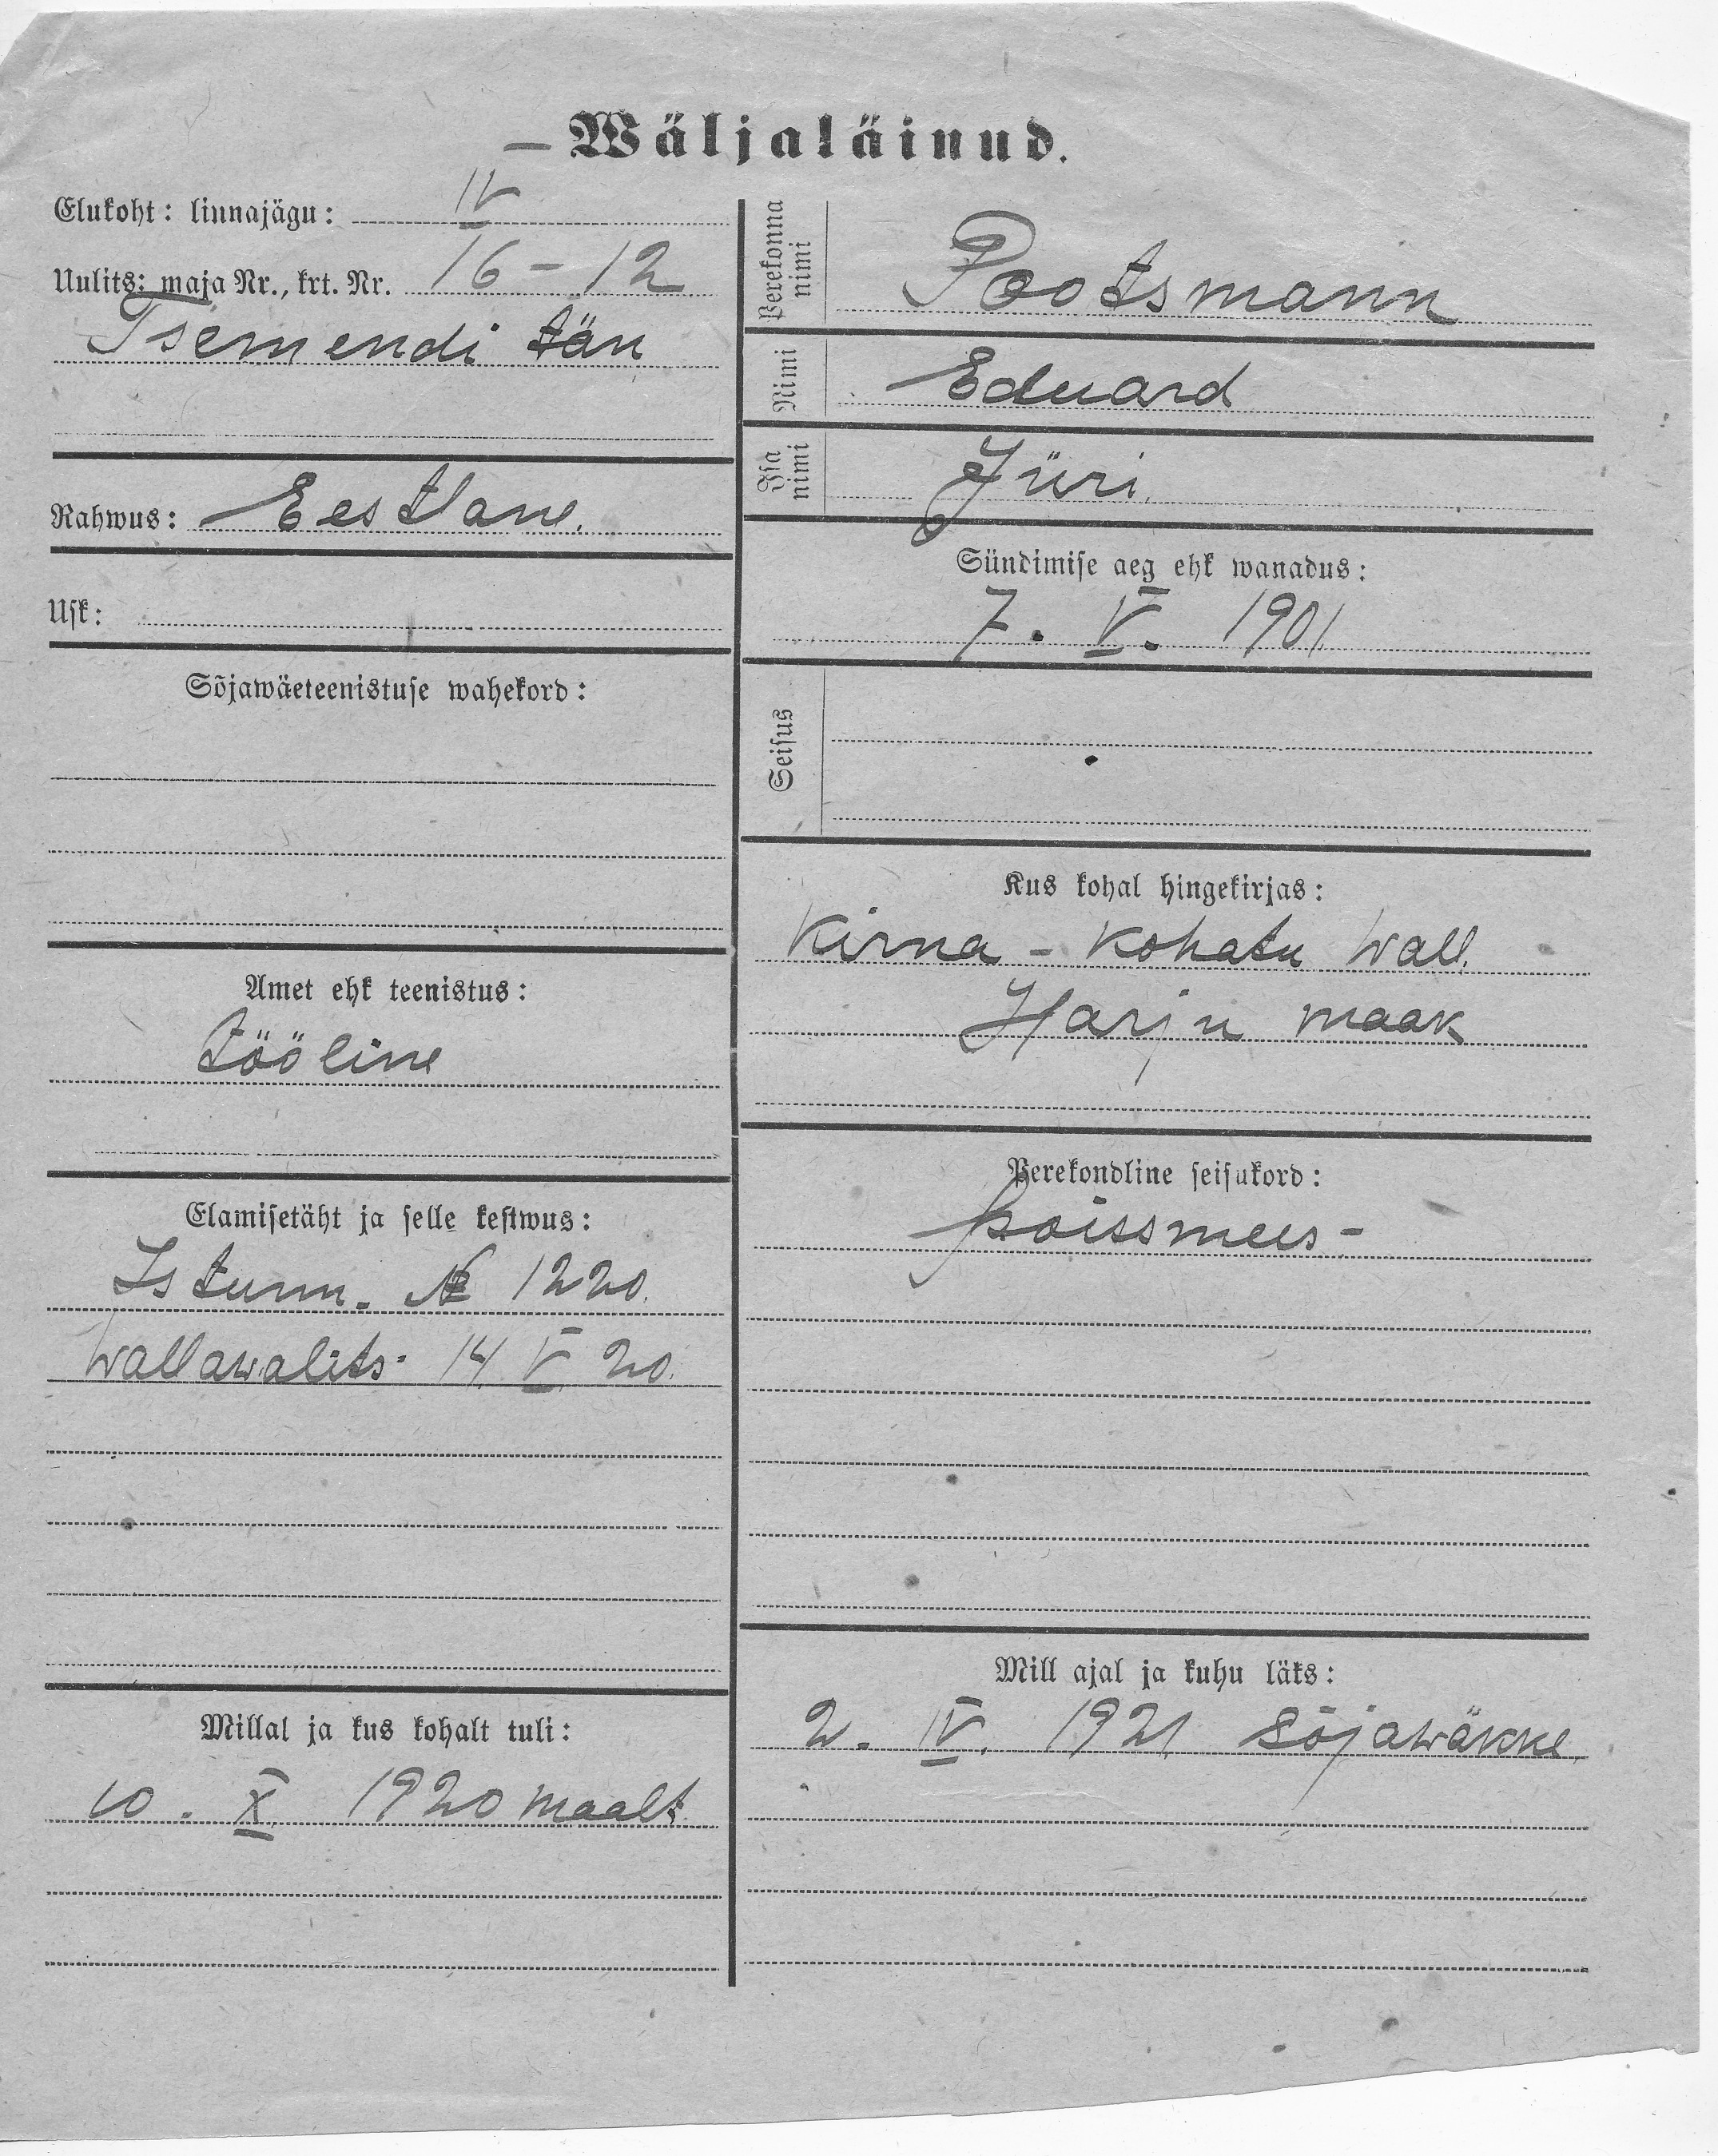 Wäljaläinud.
Elukoht: linnajägu: IV
Uulits: maja Nr., krt. Nr. 16 – 12
Tsemendi tän
Rahwus: Eestlane.
Usk:
Sõjawäeteenistuse wahekord:
Amet ehk teenistus:
tööline
Elamisetäht ja selle kestwus:
Is tunn. № 1220.
Wallawalits. 14. V. 20.
Millal ja kus kohalt tuli:
10. X. 1920 maalt.
Perekonna nimi
Pootsmann
Nimi
Eduard
Isa nimi
Jüri.
Sündimise aeg ehk wanadus:
7. V. 1901
Seisus
Kus kohal hingekirjas:
Kirna – Kohatu Wall.
Harju maak
Perekondline seisukord:
poissmees –
Mill ajal ja kuhu läks:
2. IV. 1921 Sõjawäkke.